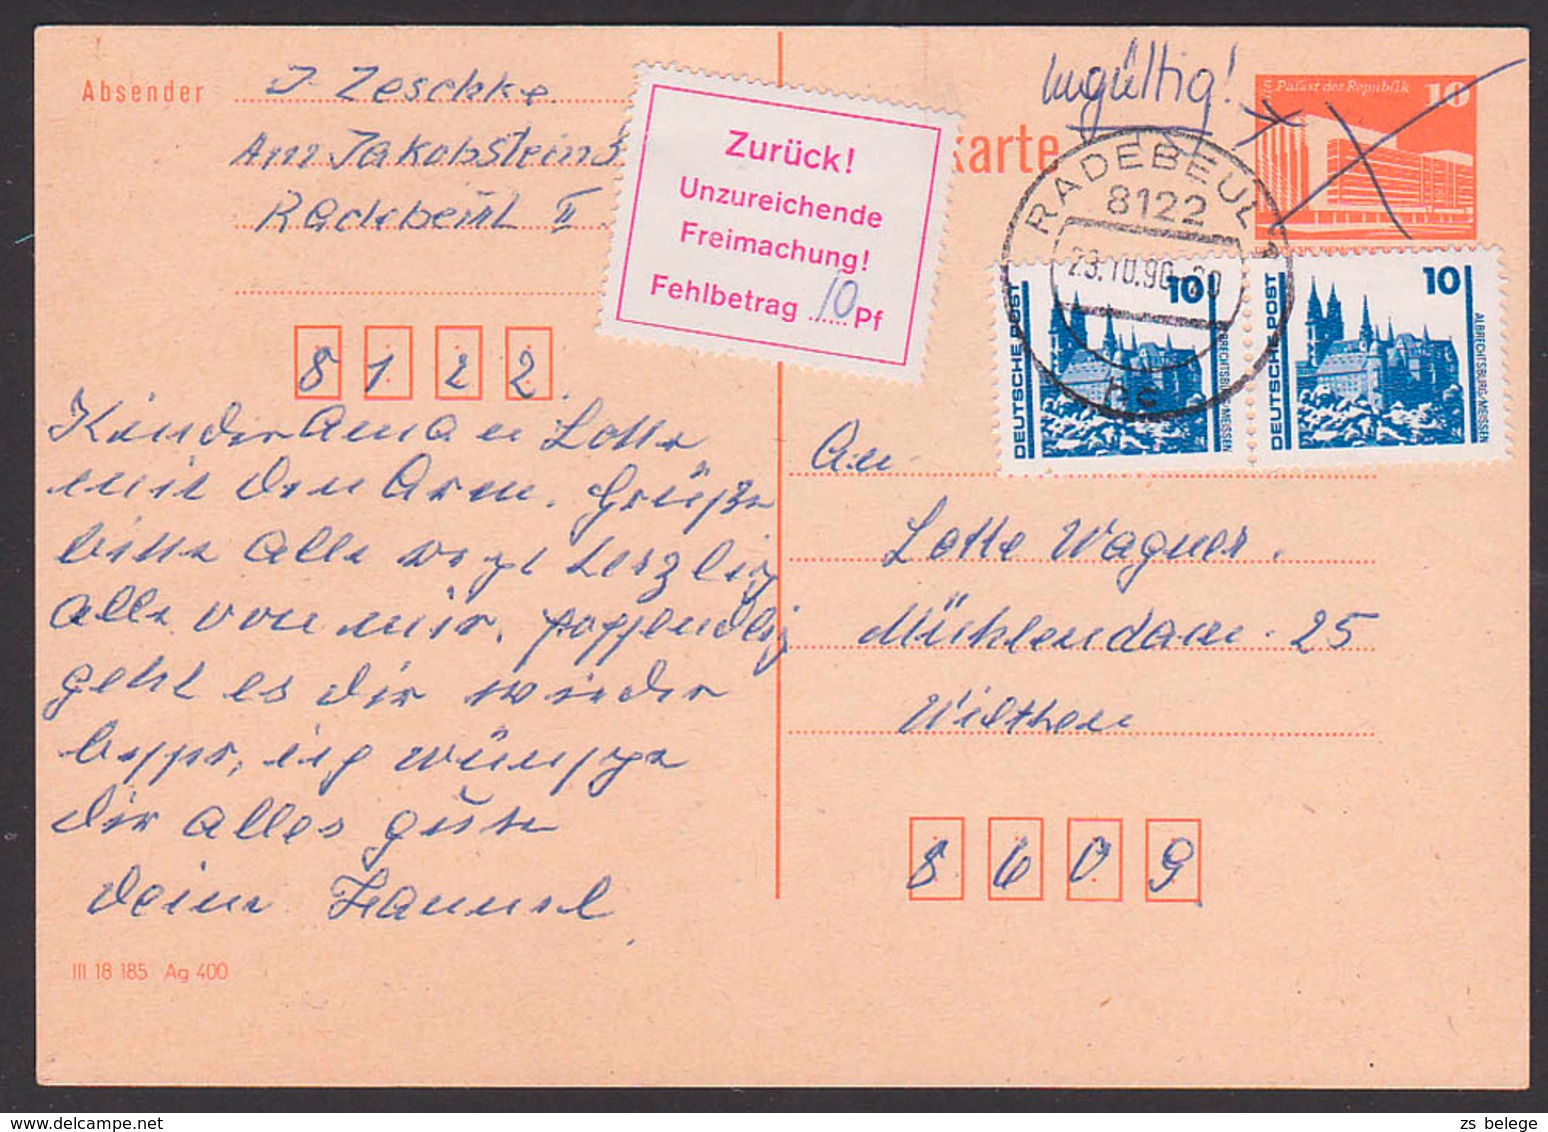 Absender
J. Zeschke
Am Jakobstein 3
Radebeul II
8 1 2 2
Zurück!
Unzureichende
Freimachung!
Fehlbetrag 10 Pf
karte
ungültig!
Palast der Republik
10
RADEBEUL 1
8122
23.10.90-20
DEUTSCHE POST
10
ALBRECHTSBURG MEISSEN
DEUTSCHE POST
10
ALBRECHTSBURG MEISSEN
Lotte
mit den Arm. Grüße
bitte alle herzlig
alle von mir. hoffendlig
geht es dir wieder
besser, ig wünsche
dir alles gute
deine Hannel
An
Lotte Wagner.
Mühlendam. 25
Wilthen
8 6 0 9
III 18 185 Ag 400
zs belege